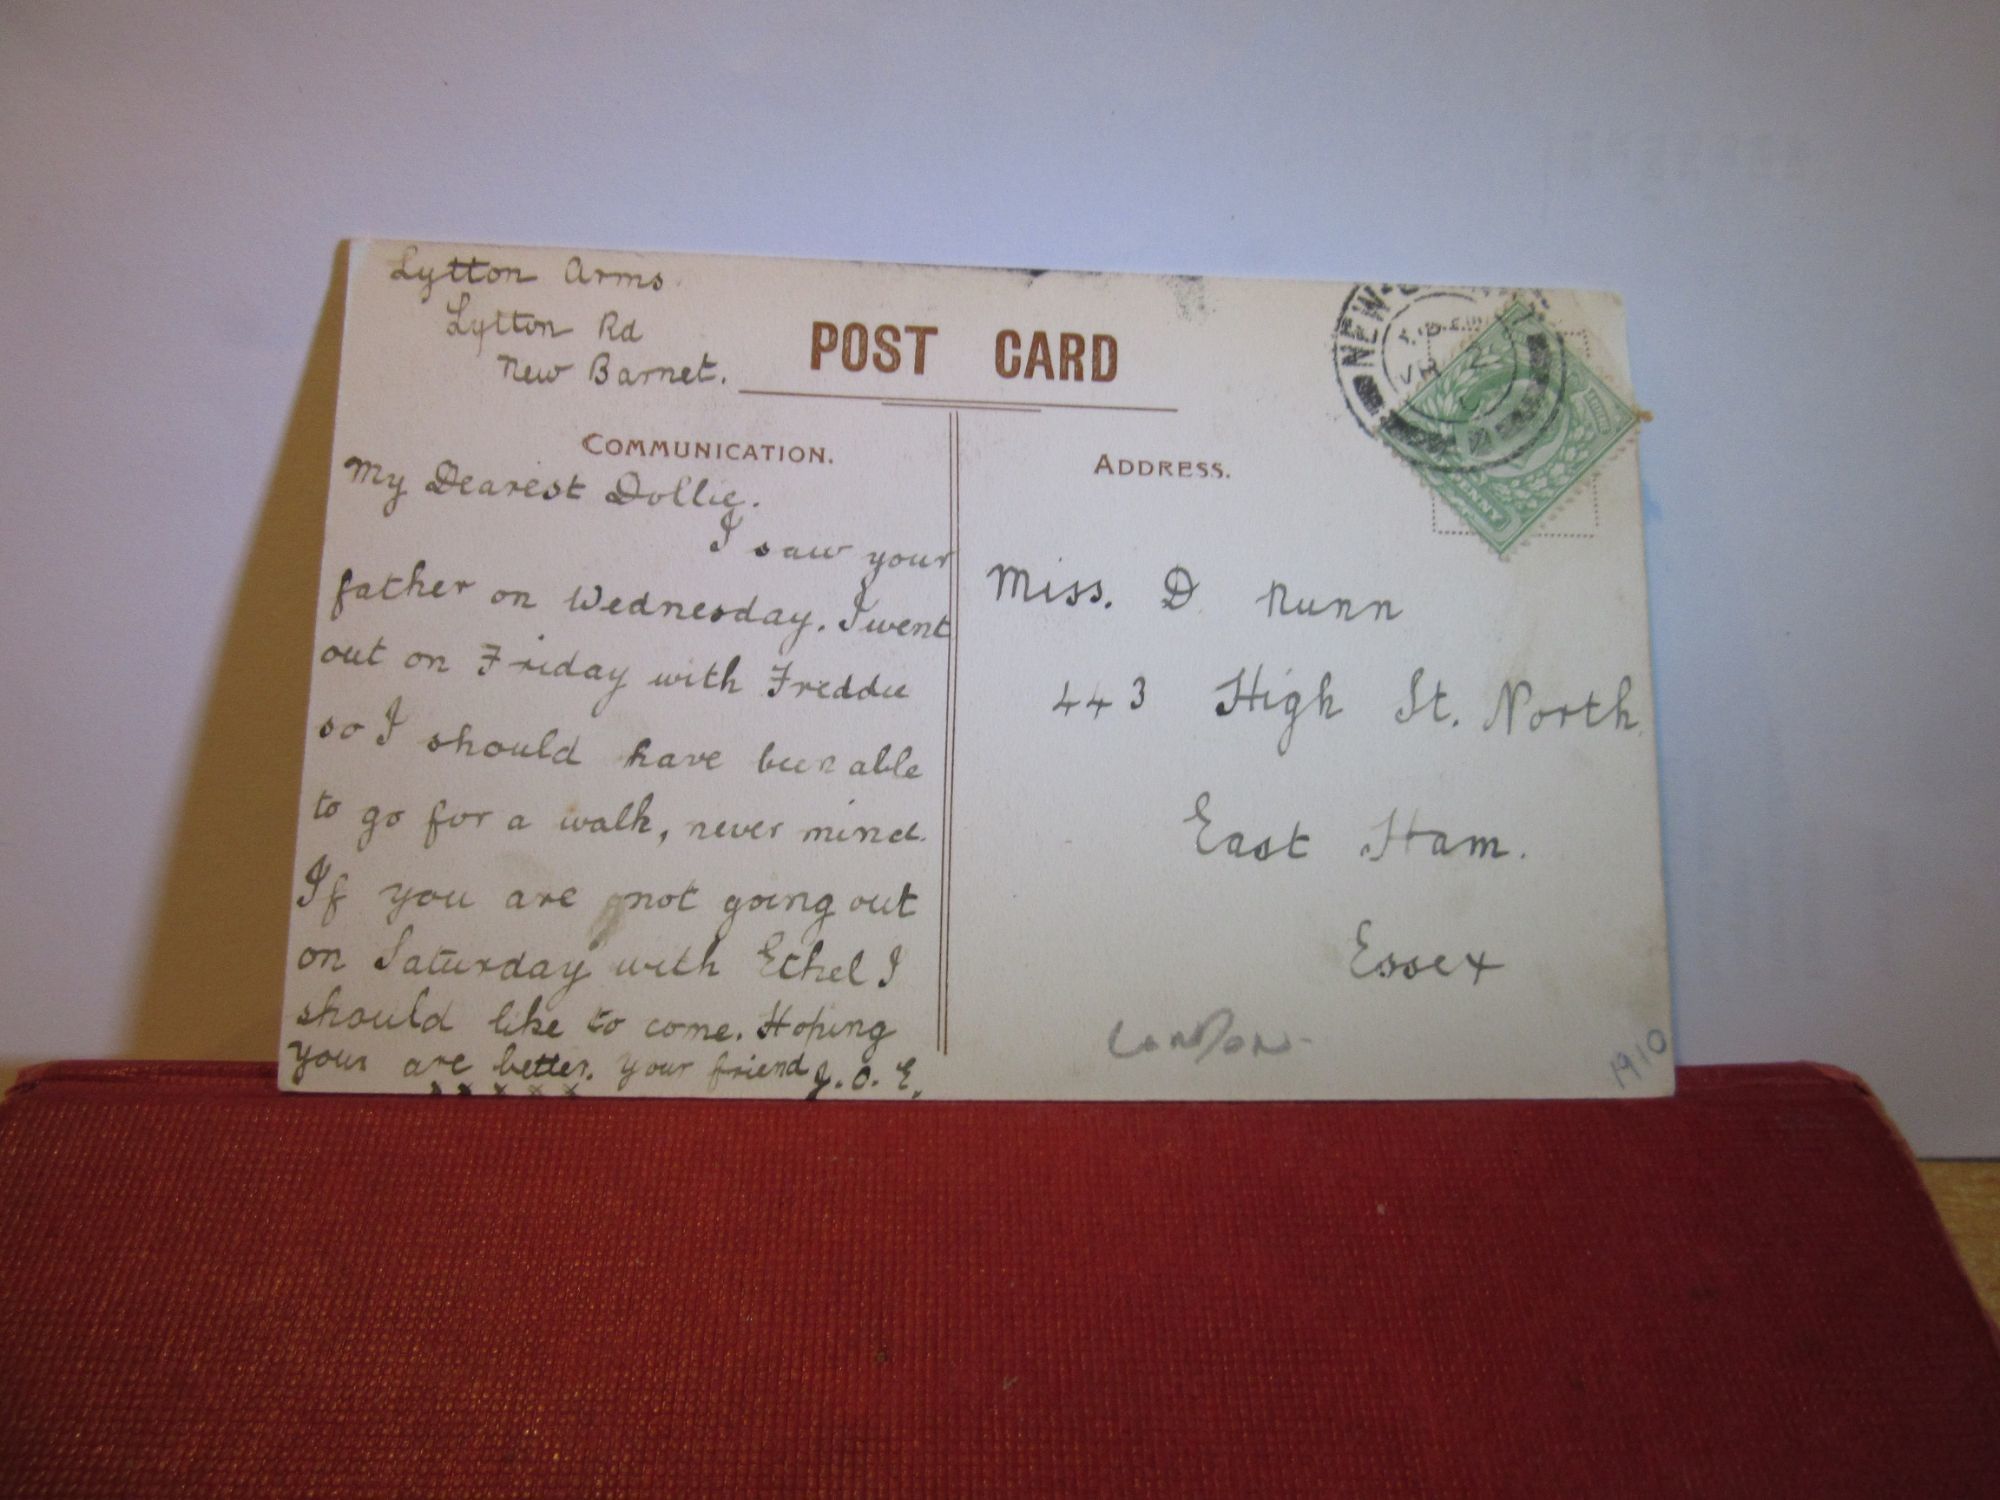 Lytton Arms
Lytton Rd
New Barnet.
POST CARD
COMMUNICATION.
My Dearest Dollie.
I saw your
father on Wednesday. I went
out on Friday with Freddie
so I should have been able
to go for a walk, never mind.
If you are not going out
on Saturday with Ethel I
should like to come. Hoping
your are better. Your friend J. O. E.
x x x x x
ADDRESS.
Miss. D Nunn
443 High St. North
East Ham.
Essex
London
1910
NEW
PENNY